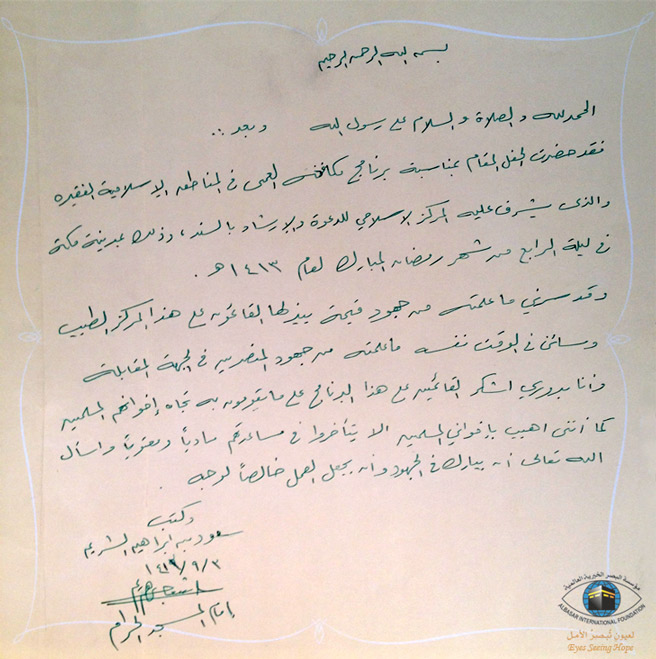 بسم الله الرحمن الرحيم
الحمد لله والصلاة والسلام على رسول الله وبعد ..
فقد حضرت الحفل المقام بمناسبة برنامج مكافحة العمى في المناطق الإسلامية الفقيره
والذى يشرف عليه المركز الاسلامي للدعوة والإرشاد بالسند، وذلك بمدينة مكة
في ليلة الرابع من شهر رمضان المبارك لعام ١٤١٣هـ.
وقد سرني ما علمته من جهود قيمة يبذلها القائمون على هذا المركز الطيب
وساءني في الوقت نفسه ما علمته من جهود المنصرين في الجهة المقابلة
وأنا بدوري اشكر القائمين على هذا البرنامج على ما يقومون به تجاه إخوانهم المسلمين
كما أنني اهيب بإخواني المسلمين الا يتأخروا في مساعدتهم مادياً ومعنوياً واسأل
الله تعالى أن يبارك في الجهود وأن يجعل العمل خالصاً لوجهه.
وكتب
سعود بن ابراهيم الشريم
إمام المسجد الحرام
مؤسسة البصر الخيرية العالمية
ALBASAR INTERNATIONAL FOUNDATION
لعيون تُبصرُ الأمل
Eyes Seeing Hope